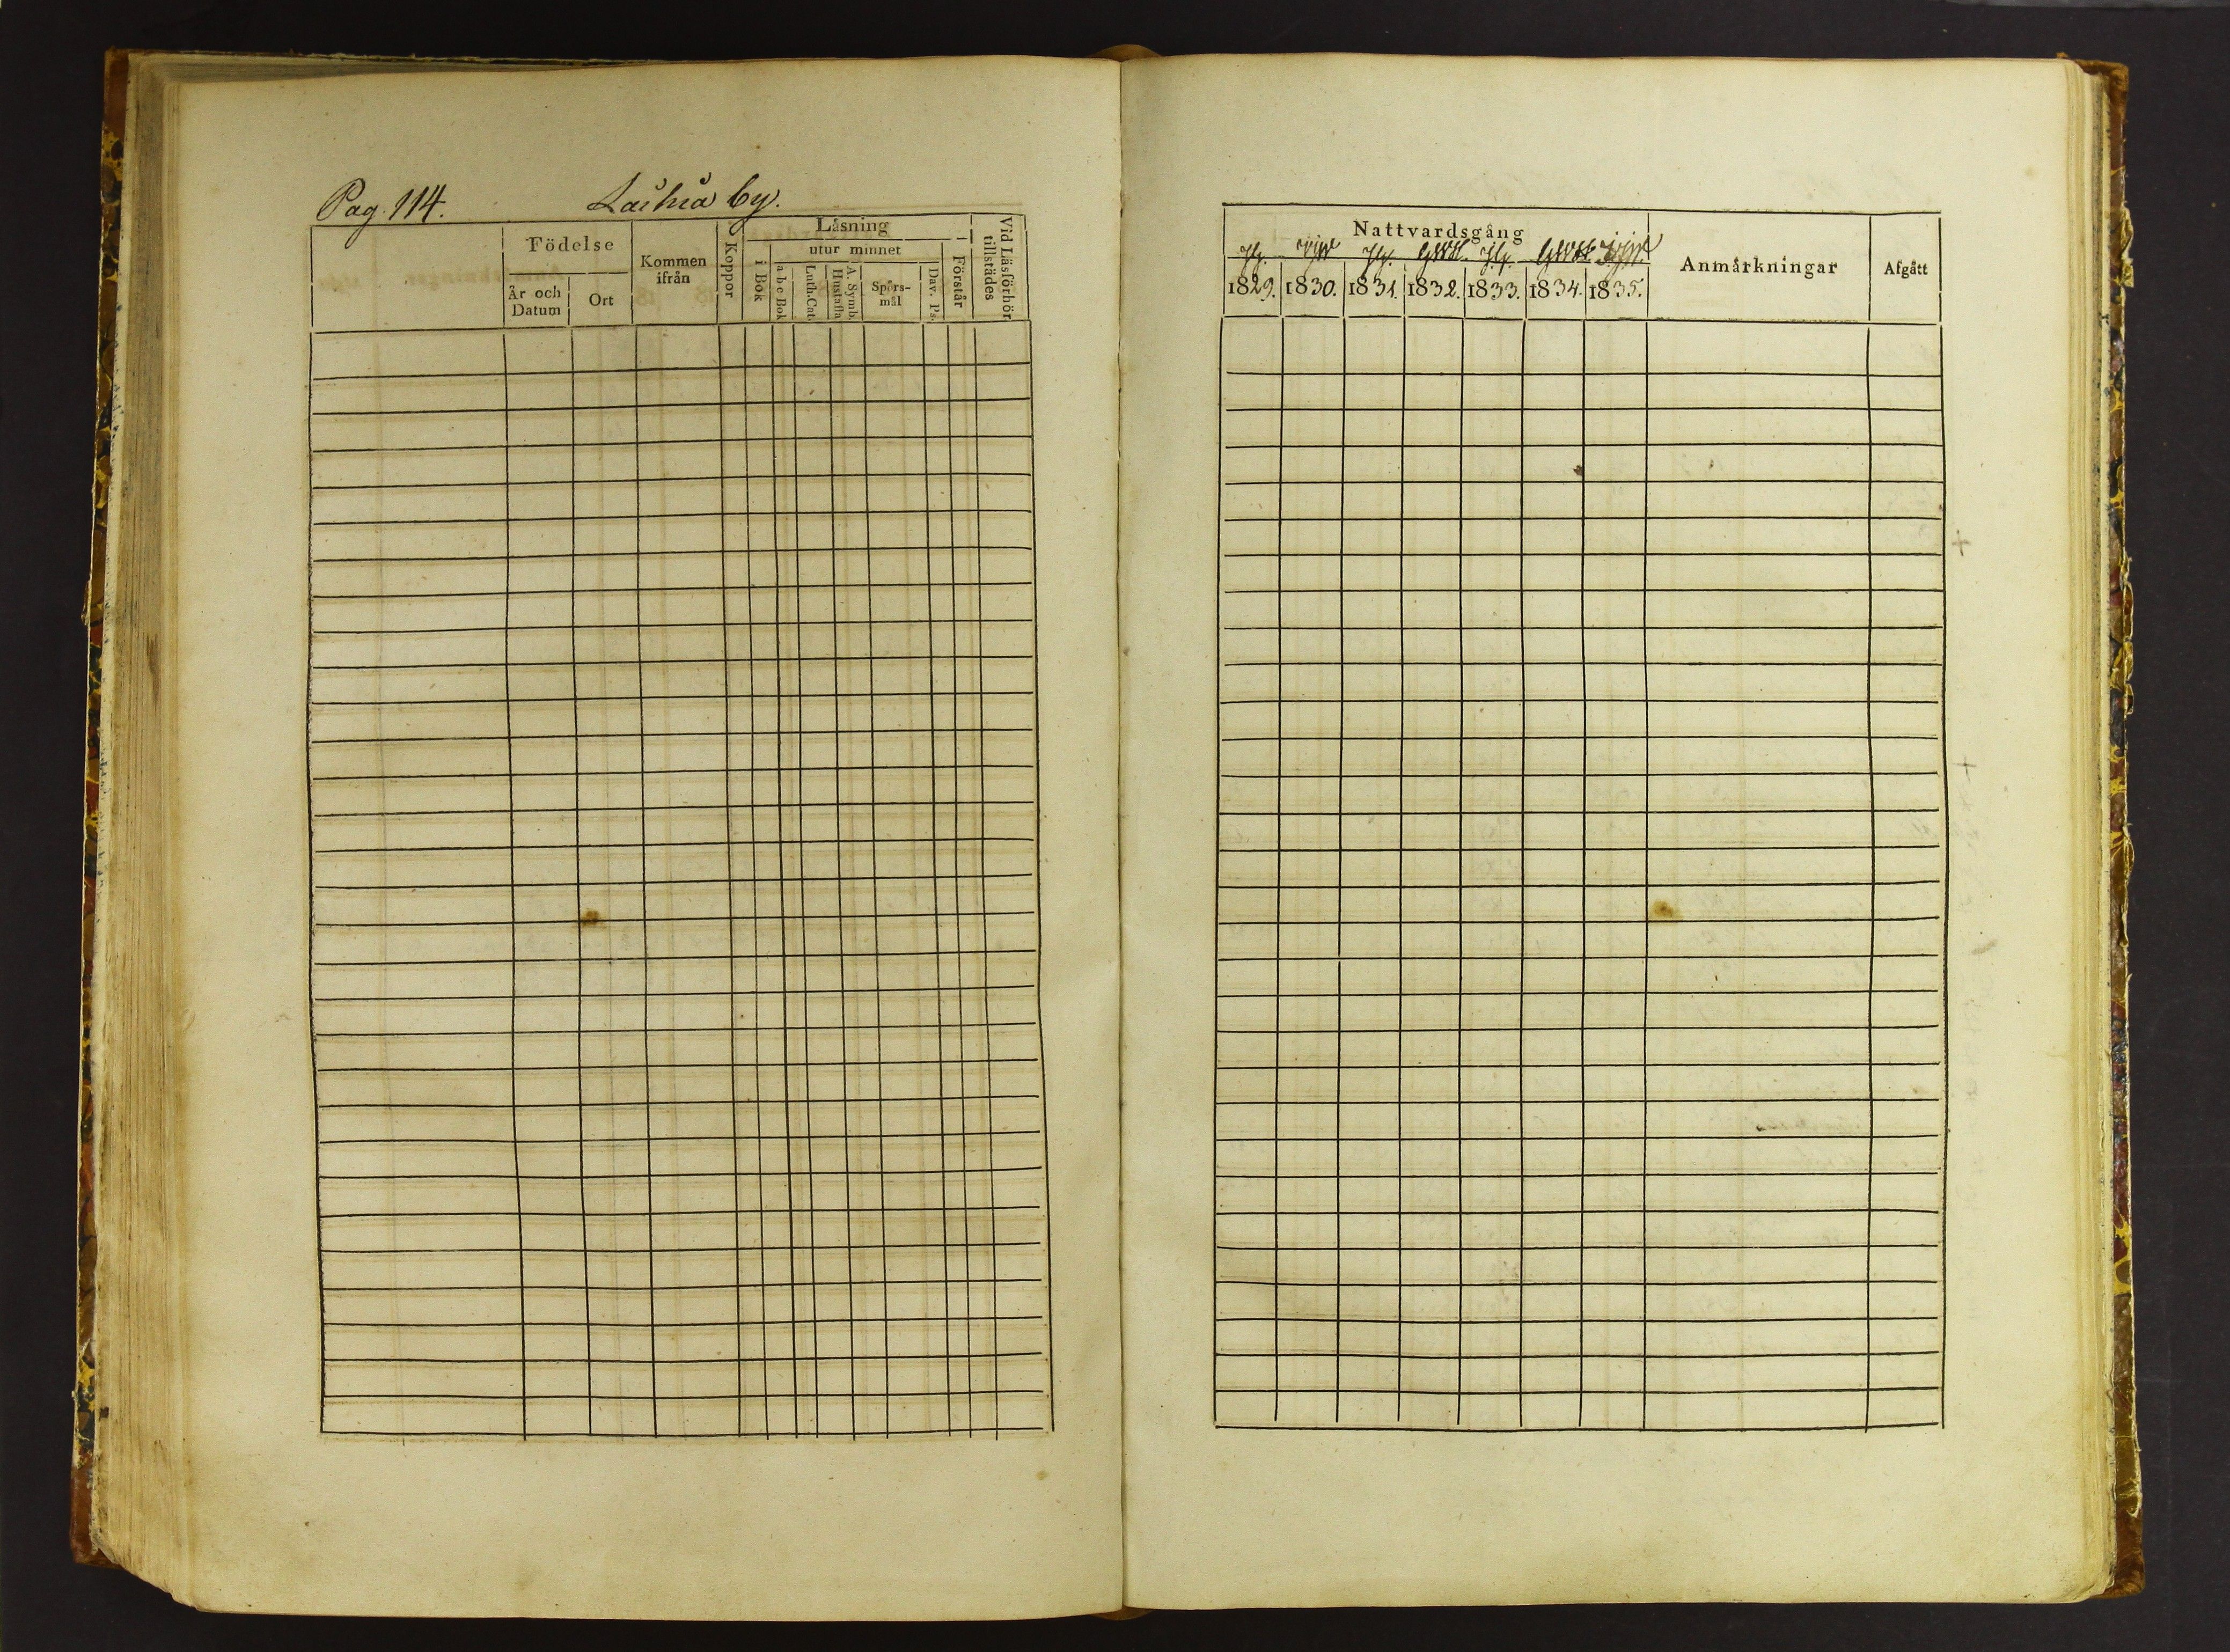 Pag. 114. Laihia by.
Födelse
År och Datum
Ort
Kommen ifrån
Koppor
Läsning
i Bok
utur minnet
a b c Bok
Luth. Cat.
A. Symb. Hustafla
Spörsmål
Dav. Ps.
Förstår
Vid Läsförhör tillstädes
Nattvardsgång
1829. 1830. 1831. 1832. 1833. 1834. 1835.
Anmärkningar
Afgått